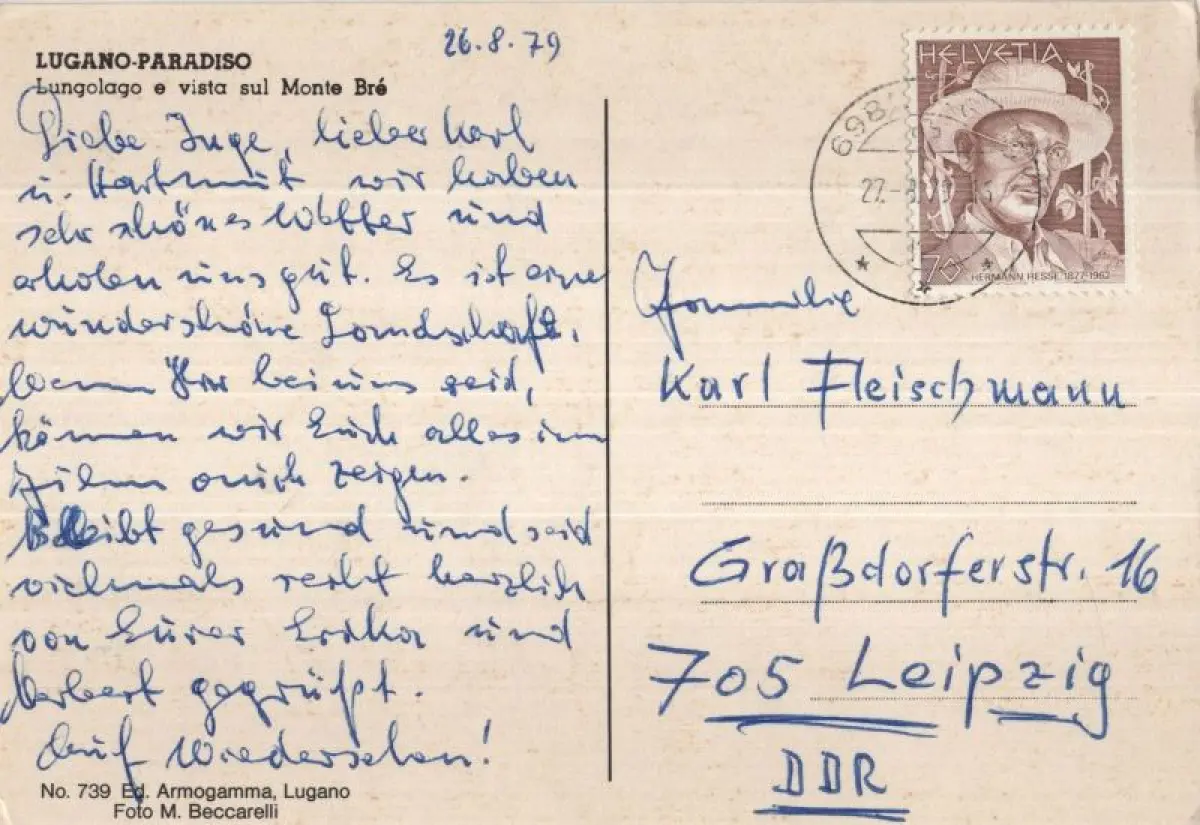 26.8.79
LUGANO-PARADISO
Lungolago e vista sul Monte Bré
Liebe Inge, lieber Karl
u. Hartmut, wir haben
sehr schönes Wetter und
erholen uns gut. Es ist eine
wunderschöne Landschaft.
Wenn Ihr bei uns seid,
können wir Euch alles im
Film auch zeigen.
Bleibt gesund und seid
vielmals recht herzlich
von Eurer Erika und
Herbert gegrüßt.
Auf Wiedersehen!
No. 739 Ed. Armogamma, Lugano
Foto M. Beccarelli
HELVETIA
70
HERMANN HESSE 1877-1962
698
27.-8.79
Familie
Karl Fleischmann
Graßdorferstr. 16
705 Leipzig
DDR